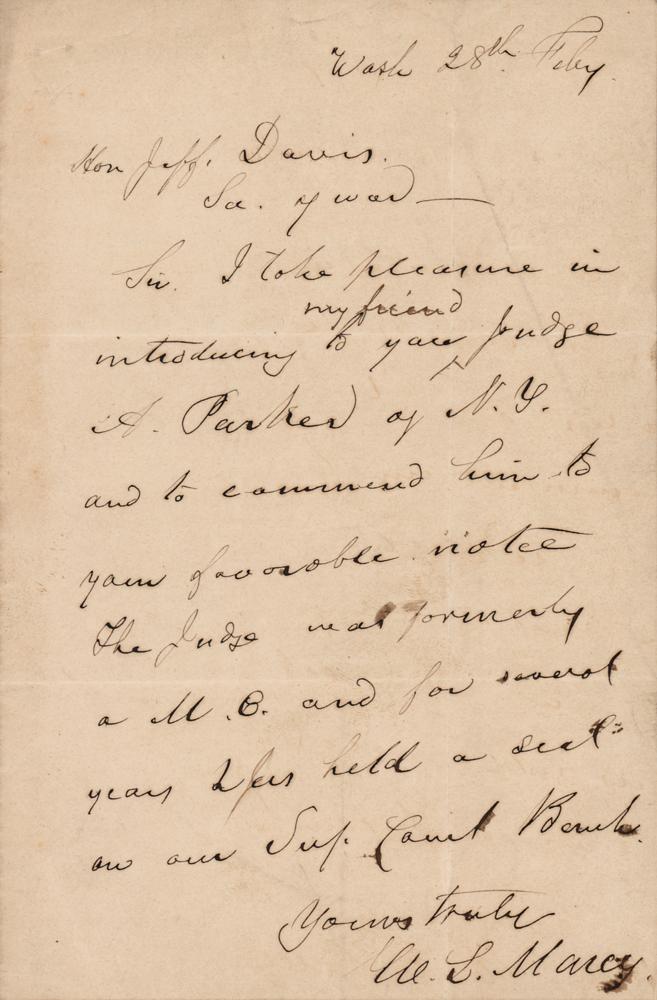 Wash 28th Feby.
Hon Jeff. Davis.
Se. of war —
Sir. I take pleasure in
my friend
introducing to you Judge
A. Parker of N. Y.
and to commend him to
your favorable notice
The Judge was formerly
a M. C. and for several
years held a seat
on our Sup. Court Bench.
Yours truly
W. L. Marcy.